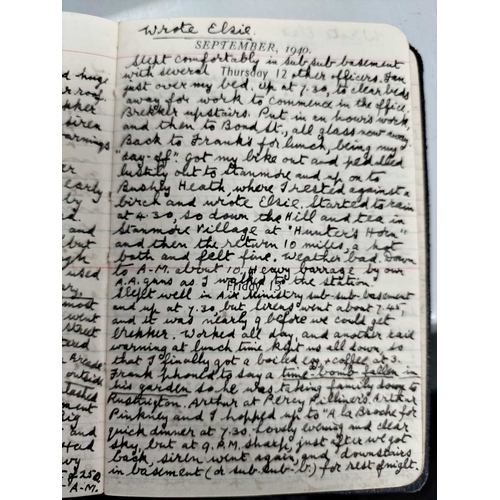 Wrote Elsie.
SEPTEMBER, 1940.
Slept comfortably in sub sub basement
with several other officers. Fan
Thursday 12
just over my bed. Up at 7.30, to clear beds
away for work to commence in the office.
Brekker upstairs. Put in an hour's work,
and then to Bond St., all glass now away.
Back to Frank's for lunch, being my
"day-off". Got my bike out and pedalled
lustily out to Stanmore and up on to
Bushey Heath, where I rested against a
birch and wrote Elsie. Started to rain
at 4.30, so down the Hill and tea in
Stanmore Village at "Hunter's Horn"
and then the return 10 miles, a hot
bath and felt fine. Weather bad. Down
to A-M. about 10. Heavy barrage by our
A.A. guns as I walked to the station.
Friday 13
Slept well in Air Ministry sub-sub-basement
and up at 7.30, but sirens went about 7.45,
and it was nearly 9 before we could get
brekker. Worked all day, and another raid
warning at lunch time kept us all down, so
that I finally got a boiled egg & coffee at 3.
Frank phoned to say a time-bomb fallen in
his garden so he was taking family down to
Rustington. Arthur at Percy Palliner's. Arthur
Pinkney and I hopped up to "A la Broche for
quick dinner at 7.30. Lovely evening and clear
sky, but at 9 P.M. sharp, just after we got
back, siren went again, and downstairs
in basement (or sub-sub-b.) for rest of night.
huge
roof.
siren
warnings
early
by
and
but
used
almost
went
Street
Arcade
outside
and
of 250
A-M.